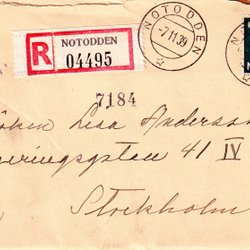 R NOTODDEN
04495
NOTODDEN
-7 11 39
7184
Lisa Andersson
41 IV
Stockholm